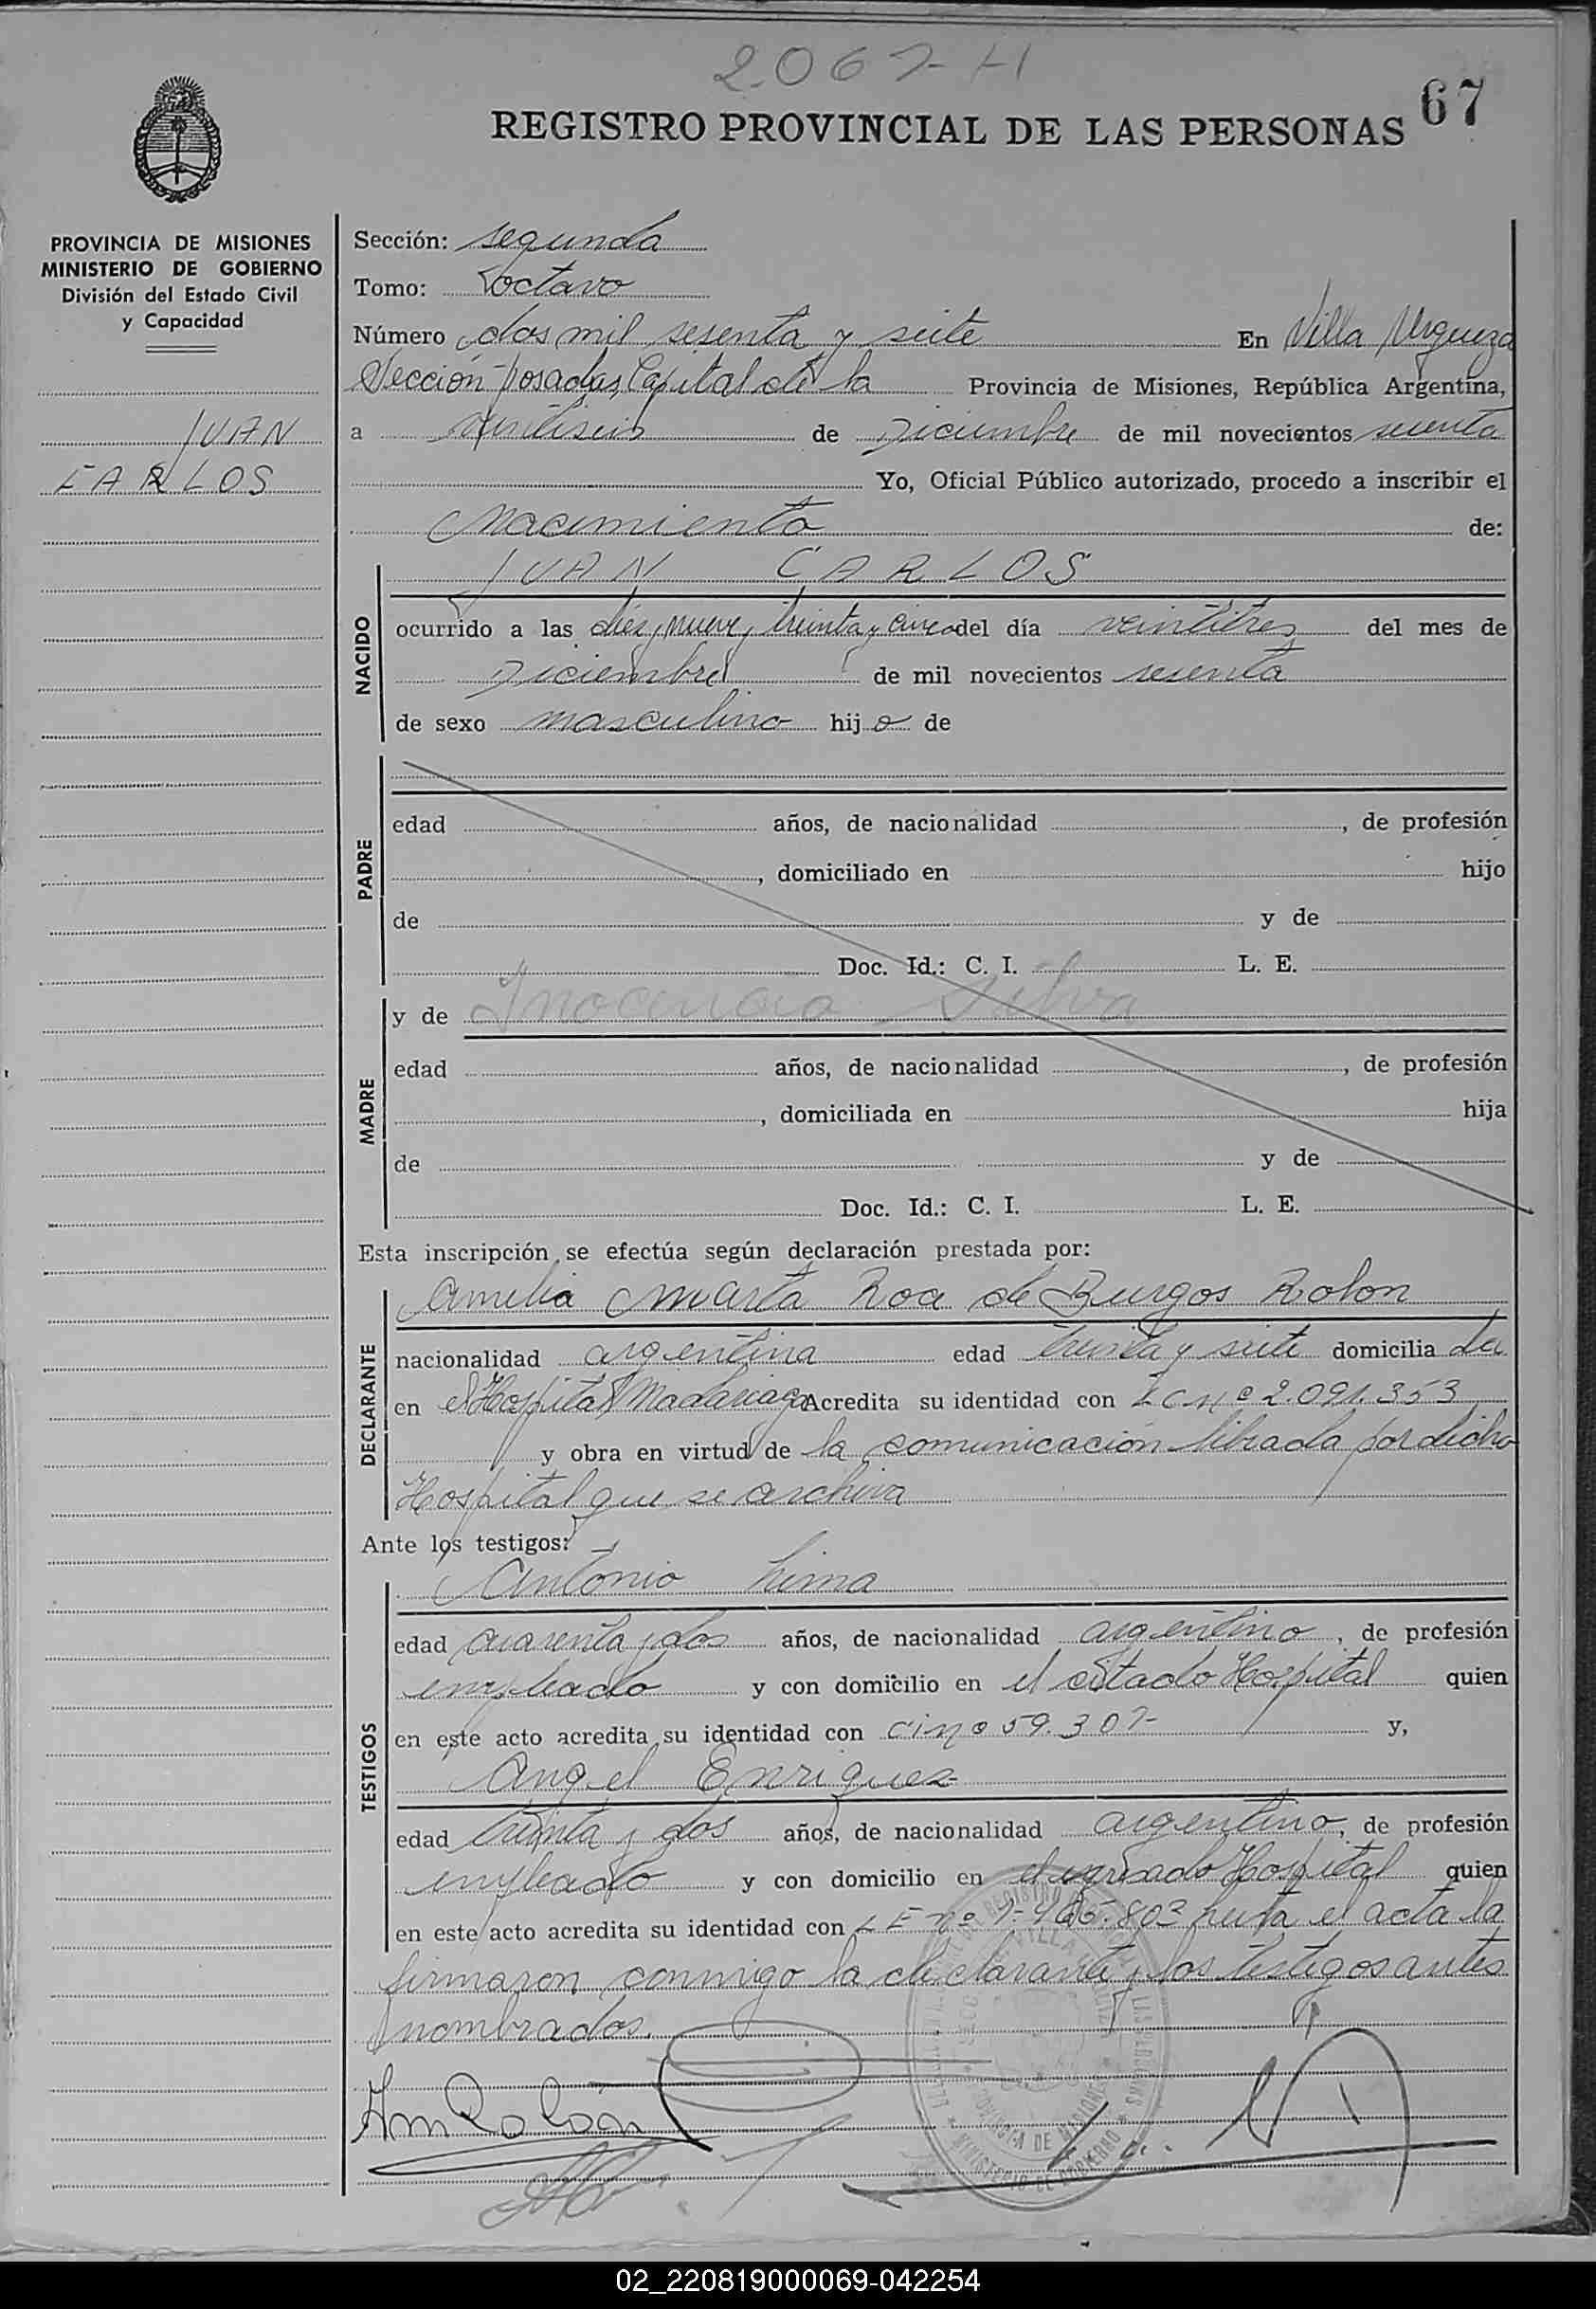 2.067-H
67
REGISTRO PROVINCIAL DE LAS PERSONAS
PROVINCIA DE MISIONES
MINISTERIO DE GOBIERNO
División del Estado Civil
y Capacidad
JUAN
CARLOS
Sección: segunda
Tomo: octavo
Número dos mil sesenta y siete En Villa Urquiza
Sección Posadas, Capital de la Provincia de Misiones, República Argentina,
a veintiseis de Diciembre de mil novecientos sesenta
Yo, Oficial Público autorizado, procedo a inscribir el
Nacimiento de:
NACIDO
JUAN CARLOS
ocurrido a las diez y nueve y treinta y cinco del día veintitres del mes de
Diciembre de mil novecientos sesenta
de sexo masculino hijo de
PADRE
edad años, de nacionalidad , de profesión
, domiciliado en hijo
de y de
Doc. Id.: C. I. L. E.
MADRE
y de Inocencia Silva
edad años, de nacionalidad , de profesión
, domiciliada en hija
de y de
Doc. Id.: C. I. L. E.
Esta inscripción se efectúa según declaración prestada por:
DECLARANTE
Amelia Marta Roa de Burgos Rolon
nacionalidad argentina edad treinta y siete domicilia da
en el Hospital Madariaga Acredita su identidad con L C nº 2.091.353
y obra en virtud de la comunicación librada por dicho
Hospital que se archiva
Ante los testigos:
TESTIGOS
Antonio Lima
edad cuarenta y dos años, de nacionalidad argentino, de profesión
empleado y con domicilio en el citado Hospital quien
en este acto acredita su identidad con C i nº 59.307- y,
Angel Enriquez
edad treinta y dos años, de nacionalidad argentino, de profesión
empleado y con domicilio en el Hospital quien
en este acto acredita su identidad con L E nº el acta la
firmaron conmigo la declarante y los testigos antes
nombrados.
Am Rolón
MINISTERIO DE GOBIERNO
02_220819000069-042254